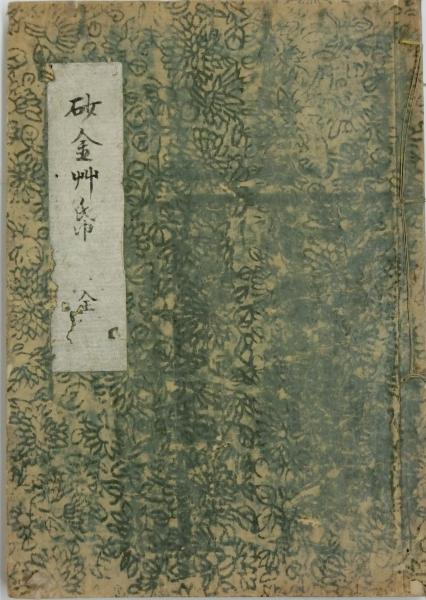 砂金艸帋 全